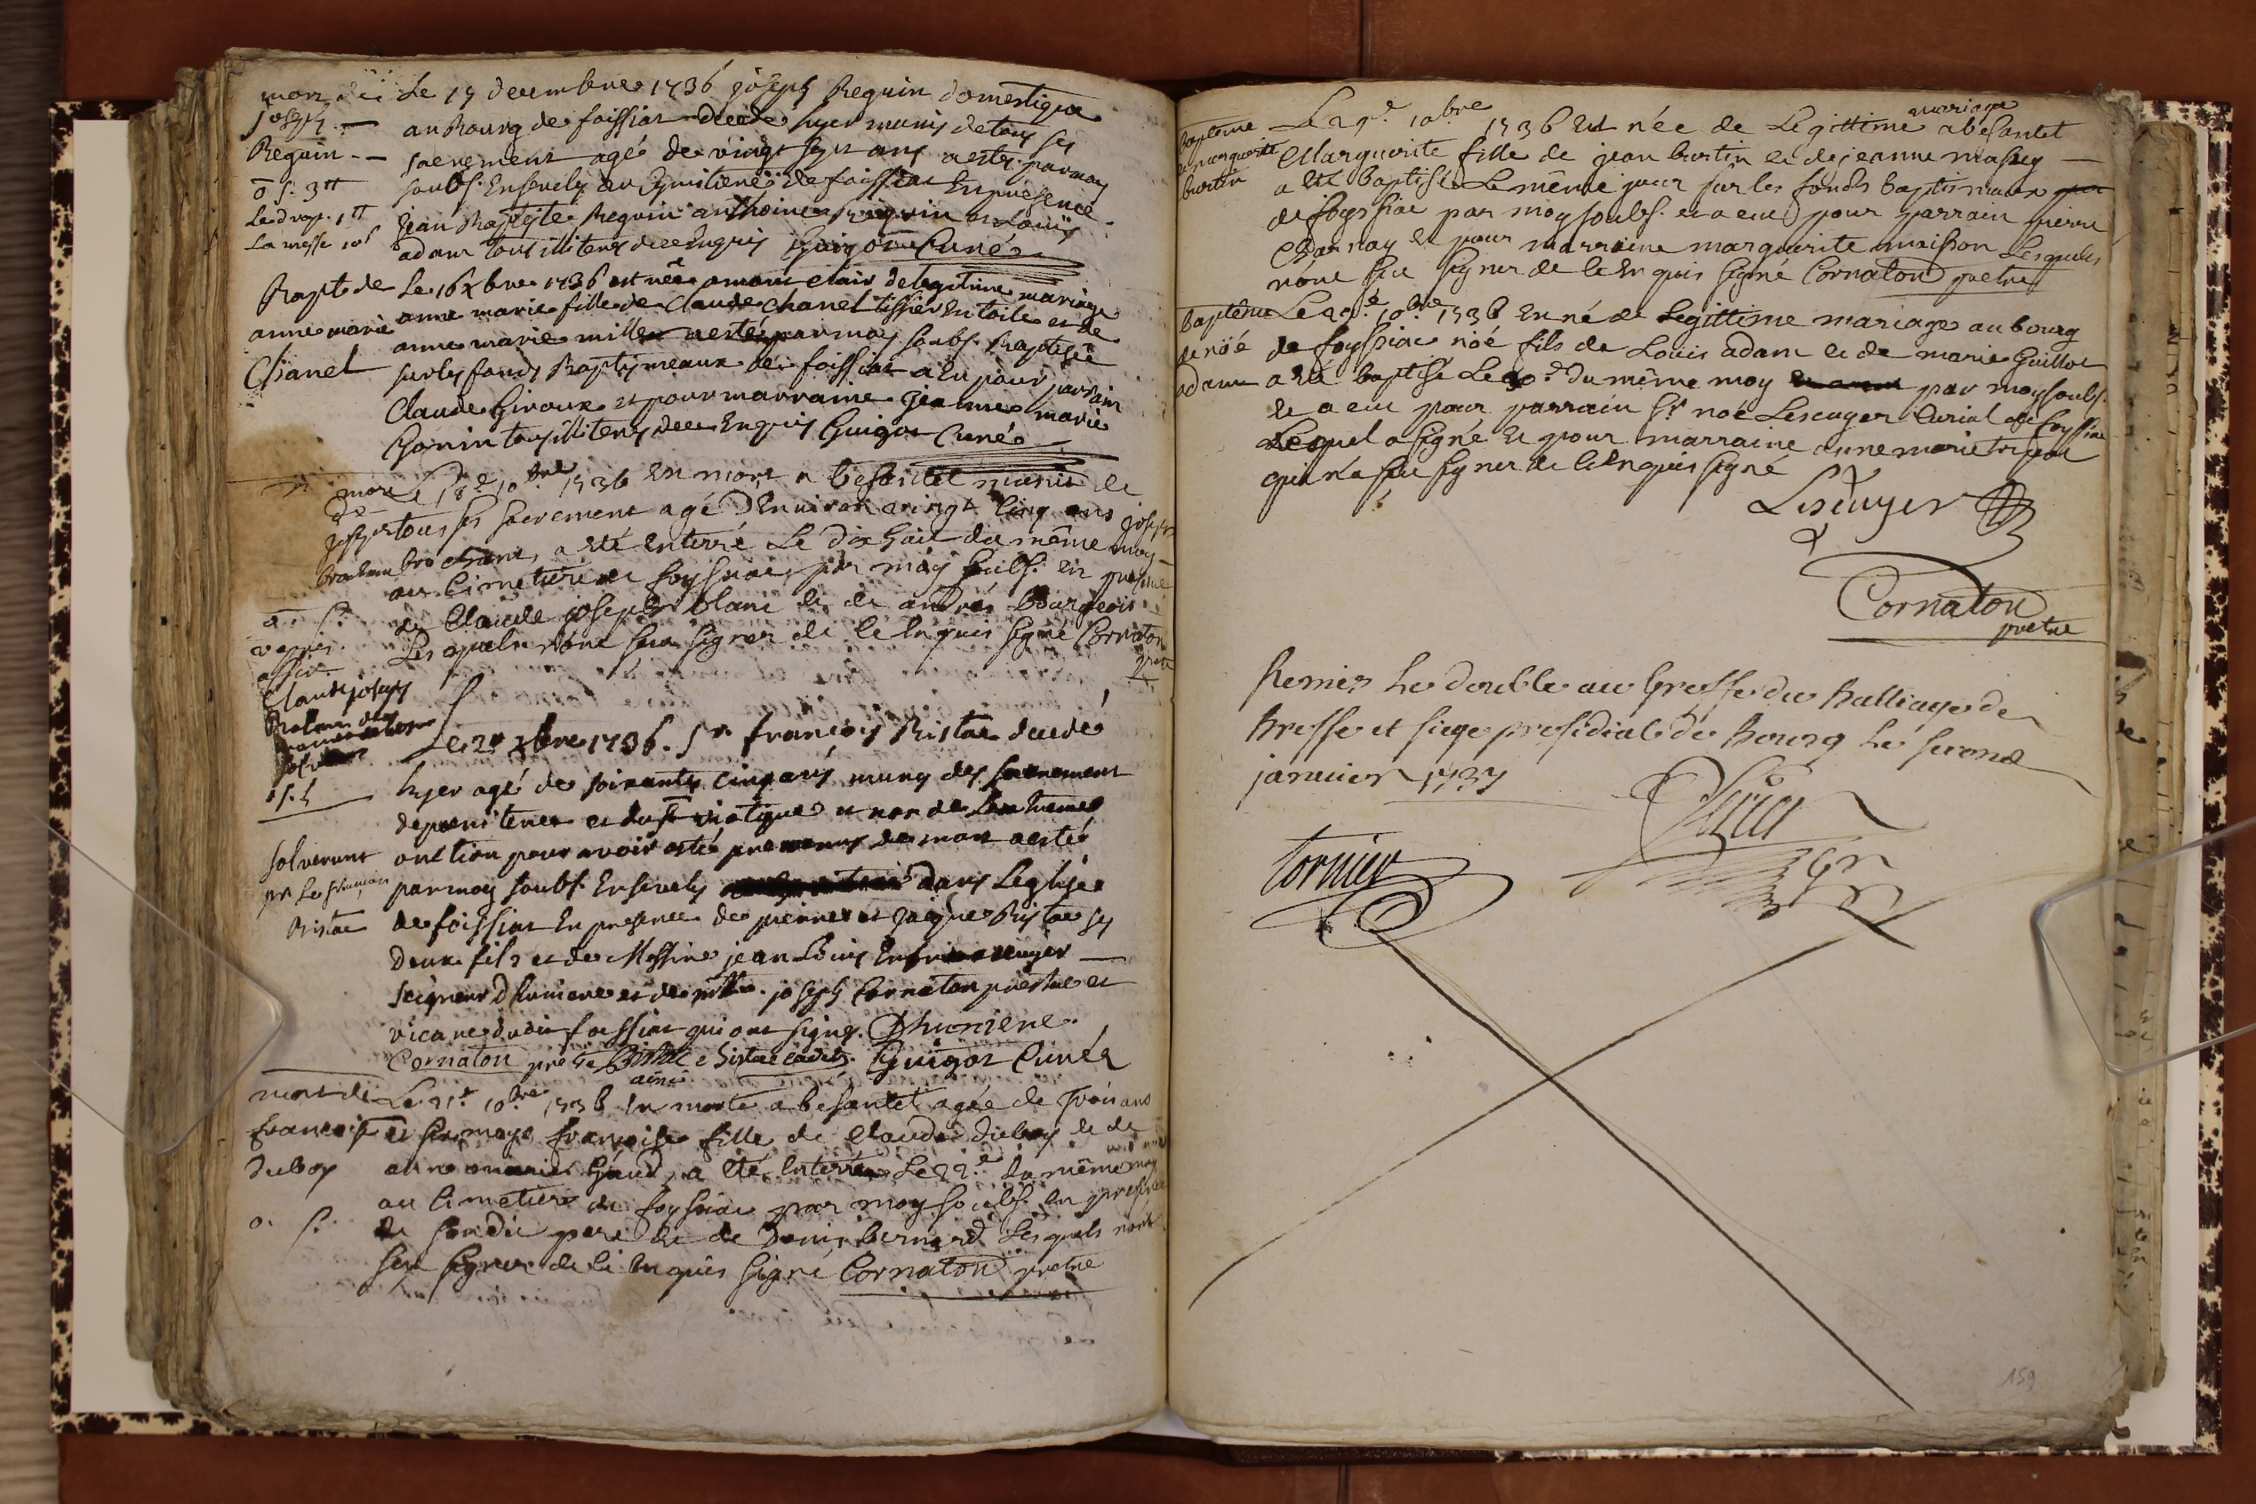 mort de
Joseph
Reguin
o s. 3tt
Le drap. 1tt
La messe 10s
Le 15 decembre 1736 joseph Reguin domestique
au Bourg de foissiat decedé hyer munis de tous ses
sacrement agé de vingt sept ans a esté par moy
soubs. Ensevely au Cymitiere de foissiat En presence
jean Baptiste Reguin anthoine Reguin et Louis
adam tous illiterez de ce Enquis Guigot Curé
Bapt. de
anne marie
Chanel
Le 16 xbre 1736 est née amont clair de legitime mariage
anne marie fille de Claude Chanel tissier En toile et de
anne marie millet a esté par moy soubs. Baptisée
sur les fonds Baptismeaux de foissiat a Eu pour parrain
Claude Giroux et pour marraine jeanne marie
Gonin tous illiterez de ce Enquis Guigot Curé
mort
de
joseph
brochan
o. s.
vepres
assist.
Claude joseph
Le 18e 10bre 1736 est mort a besantet munis de
tous ses sacrement agé d'Environ vingt Cinq ans joseph
brochan, a eté Enterré Le dix huit du même moy
au Cimetiere de foyssiac par moy soubs. en presence
de Claude joseph blanc et de andré bourgeois
Lesquels n'ont seu signer de ce Enquis signé Cornaton
pretre
o s. h
solverunt
pr Le sr francois
Bistac
Le 20 xbre 1736. Sr françois Bistac decedé
hyer agé de soixante cinq ans muny des sacrement
de penitence et du st viatique et non de Lextreme
onction pour avoir esté prevenus de mort a esté
par moy soubs. Ensevely dans Leglise
de foissiat En presence de pierre et jaique Bistac ses
deux fils et de Messire jean Louis ecuyer
seigneur Dhumiere et de mttre. joseph Cornaton prestre et
vicaire dudit foissiat qui ont signez. Dhumiene.
Cornaton pretre Bistac Bistac cadet. Guigot Curé
ainé
mort de
francoise
duboy
o. s.
Le 21e 10bre 1736 est morte a besantet agée de trois ans
et six moys francoise fille de Claude duboy et de
anne marie Gaud, a eté Enterrée Le 22e du même moy
au Cimetiere de foyssiac par moy soubs. en presence
de son dit pere et de Denis bernard Lesquels n'ont
seu signer de ce Enquis signé Cornaton pretre
Baptême
de marguerite
burtin
Le 29e 10bre 1736 est née de Legittime mariage a besantet
Marguerite fille de jean burtin et de jeanne masuy
a eté baptisée Le même jour sur les fonds baptismaux
de foyssiac par moy soubs. et a eu pour parrain pierre
Charnay et pour marraine marguerite maison Lesquels
n'ont seu signer de ce Enquis signé Cornaton pretre
Baptême
de noé
adam
Le 29e 10bre 1736 est né de Legittime mariage au bourg
de foyssiac noé fils de Louis adam et de marie Guillot
a eté baptisé Le 30e du même moy par moy soubs.
et a eu pour parrain Sr noé Lescuyer Curial de foyssiac
Lequel a signé et pour marraine anne marie
qui n'a seu signer de ce Enquis signé
Lescuyer
Cornaton
pretre
Remis Le double au Greffe du Balliage de
Bresse et siege presidial de Bourg Le second
janvier 1737
Cornier
159